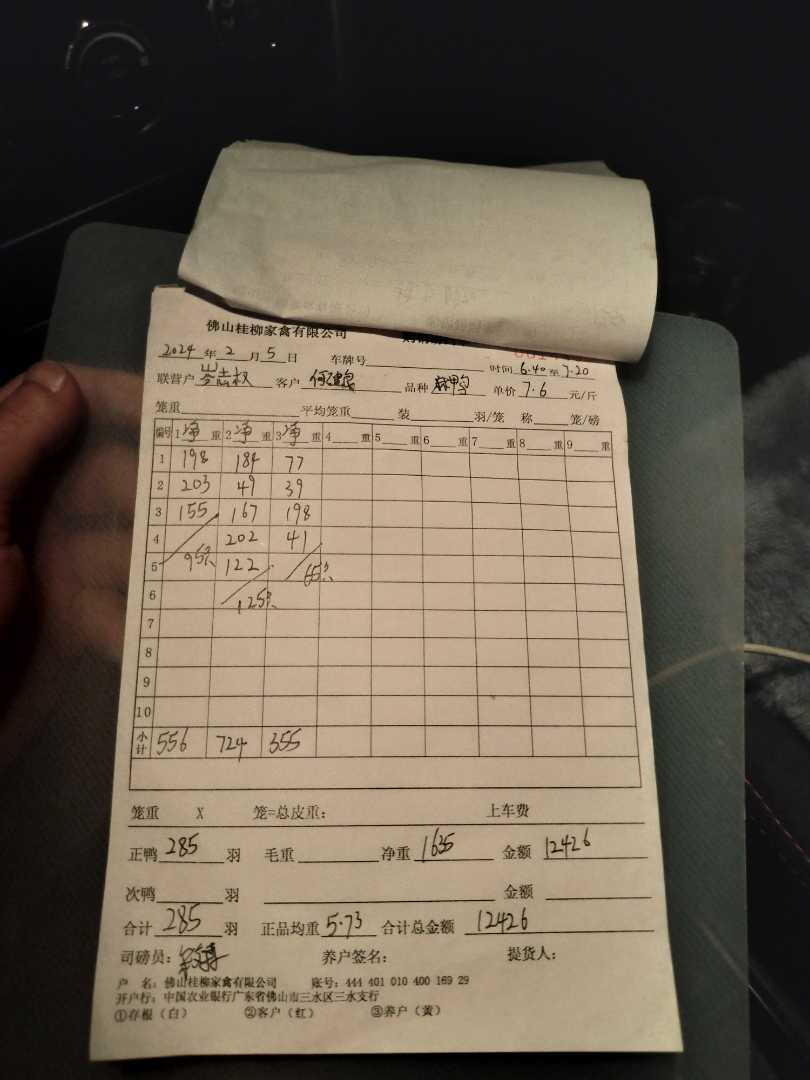 佛山桂柳家禽有限公司
2024年2月5日 车牌号 时间6.40至7.20
联营户 岑志权 客户 何建良 品种 麻鸭 单价 7.6 元/斤
笼重 平均笼重 装 羽/笼 称 笼/磅
编号 1净重 2净重 3净重 4重 5重 6重 7重 8重 9重
1 198 184 77
2 203 49 39
3 155 167 198
4 202 41
5 95只 122 65只
6 125只
7
8
9
10
小计 556 724 355
笼重 X 笼=总皮重: 上车费
正鸭 285 羽 毛重 净重 1635 金额 12426
次鸭 羽 金额
合计 285 羽 正品均重 5.73 合计总金额 12426
司磅员: 养户签名: 提货人:
户 名: 佛山桂柳家禽有限公司 账号: 444 401 010 400 169 29
开户行: 中国农业银行广东省佛山市三水区三水支行
①存根(白) ②客户(红) ③养户(黄)